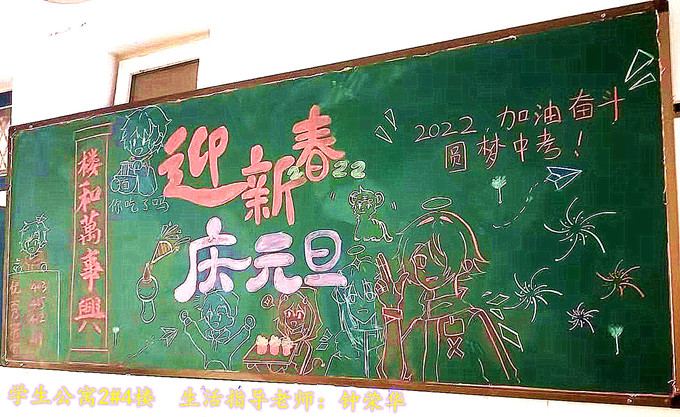 楼和萬事興
迎新春
2022
庆元旦
你吃了吗
面
2022,加油奋斗
圆梦中考!
443
445
442
学生公寓2#4楼 生活指导老师:钟荣华